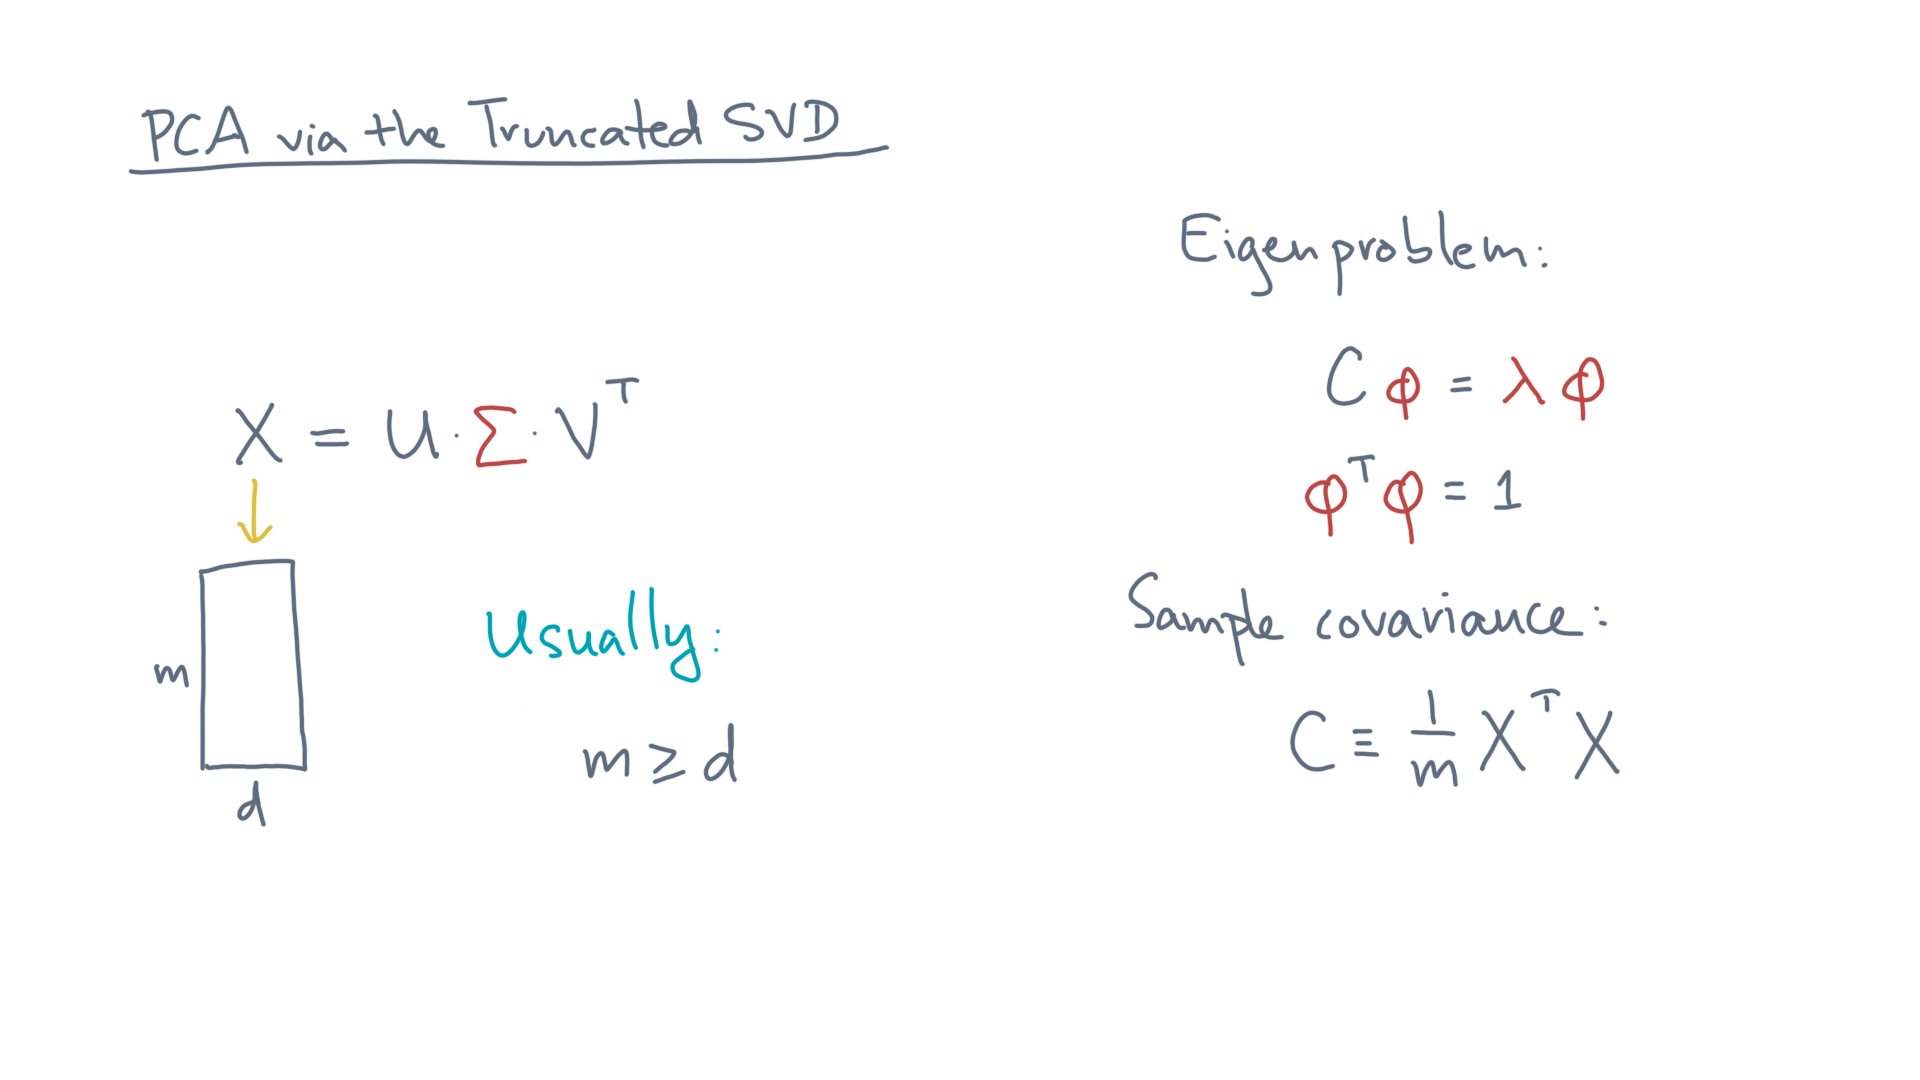 PCA via the Truncated SVD
X = U · Σ · V^T
m
d
Usually:
m ≥ d
Eigenproblem:
C φ = λ φ
φ^T φ = 1
Sample covariance:
C ≡ 1/m X^T X